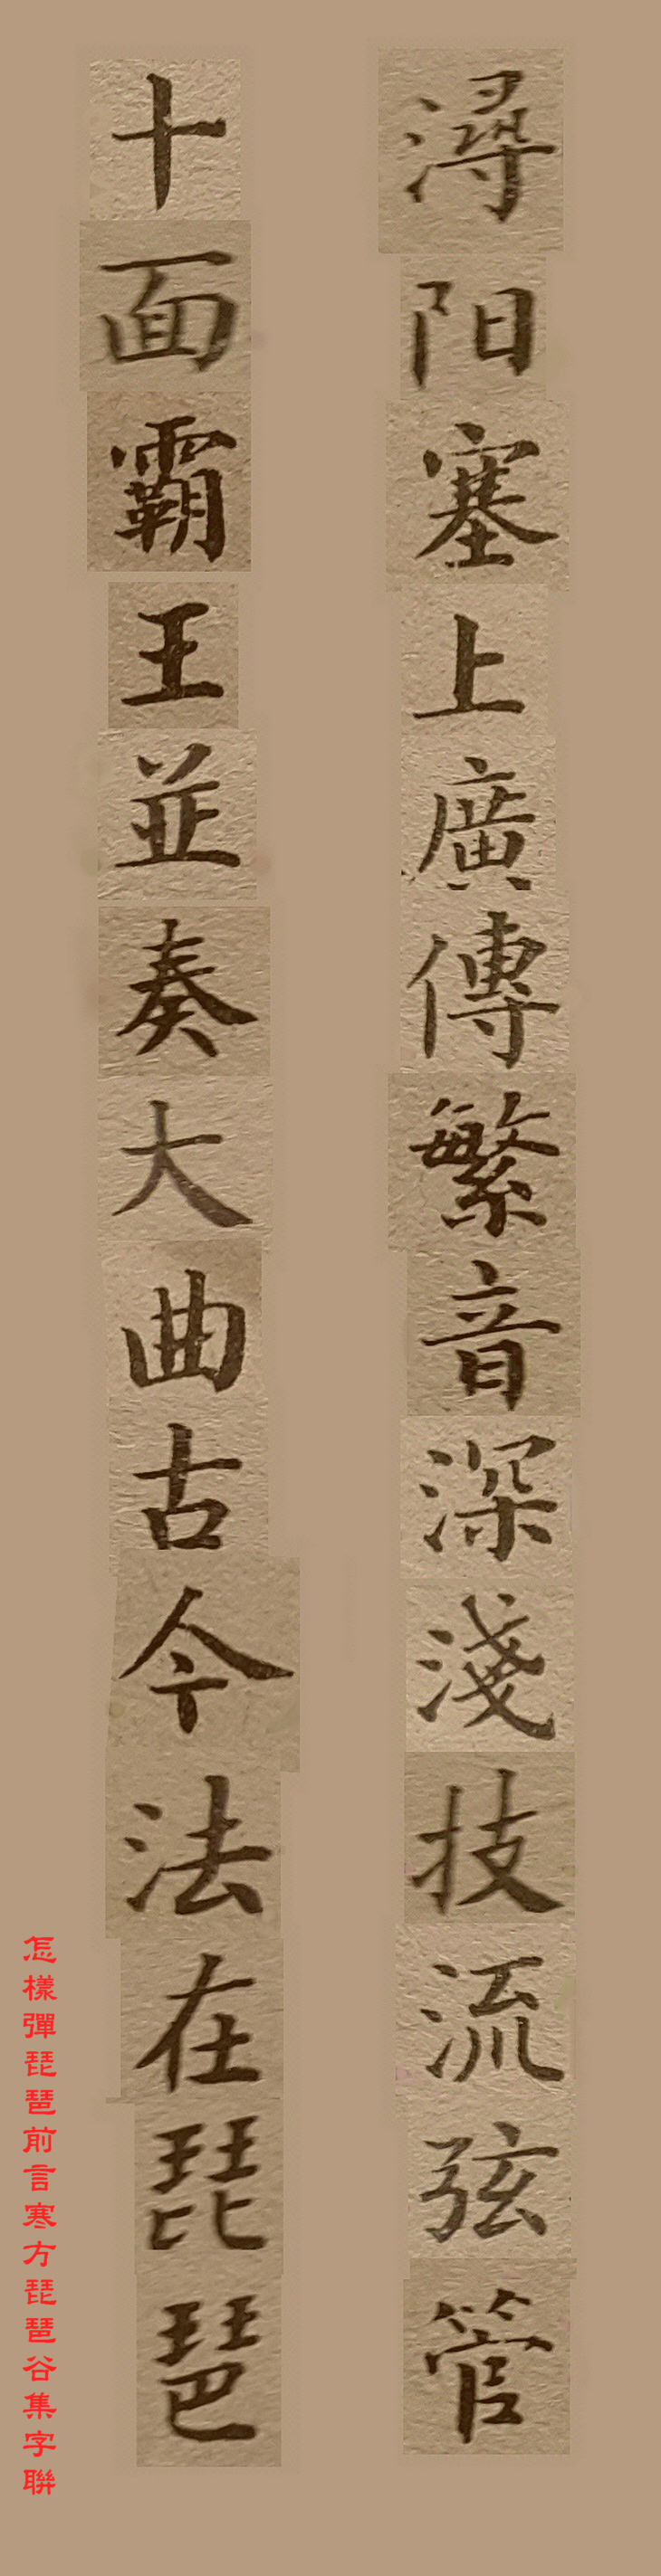 潯阳塞上廣傳繁音深淺技流弦管
十面霸王並奏大曲古今法在琵琶
怎樣彈琵琶前言寒方琵琶谷集字聯